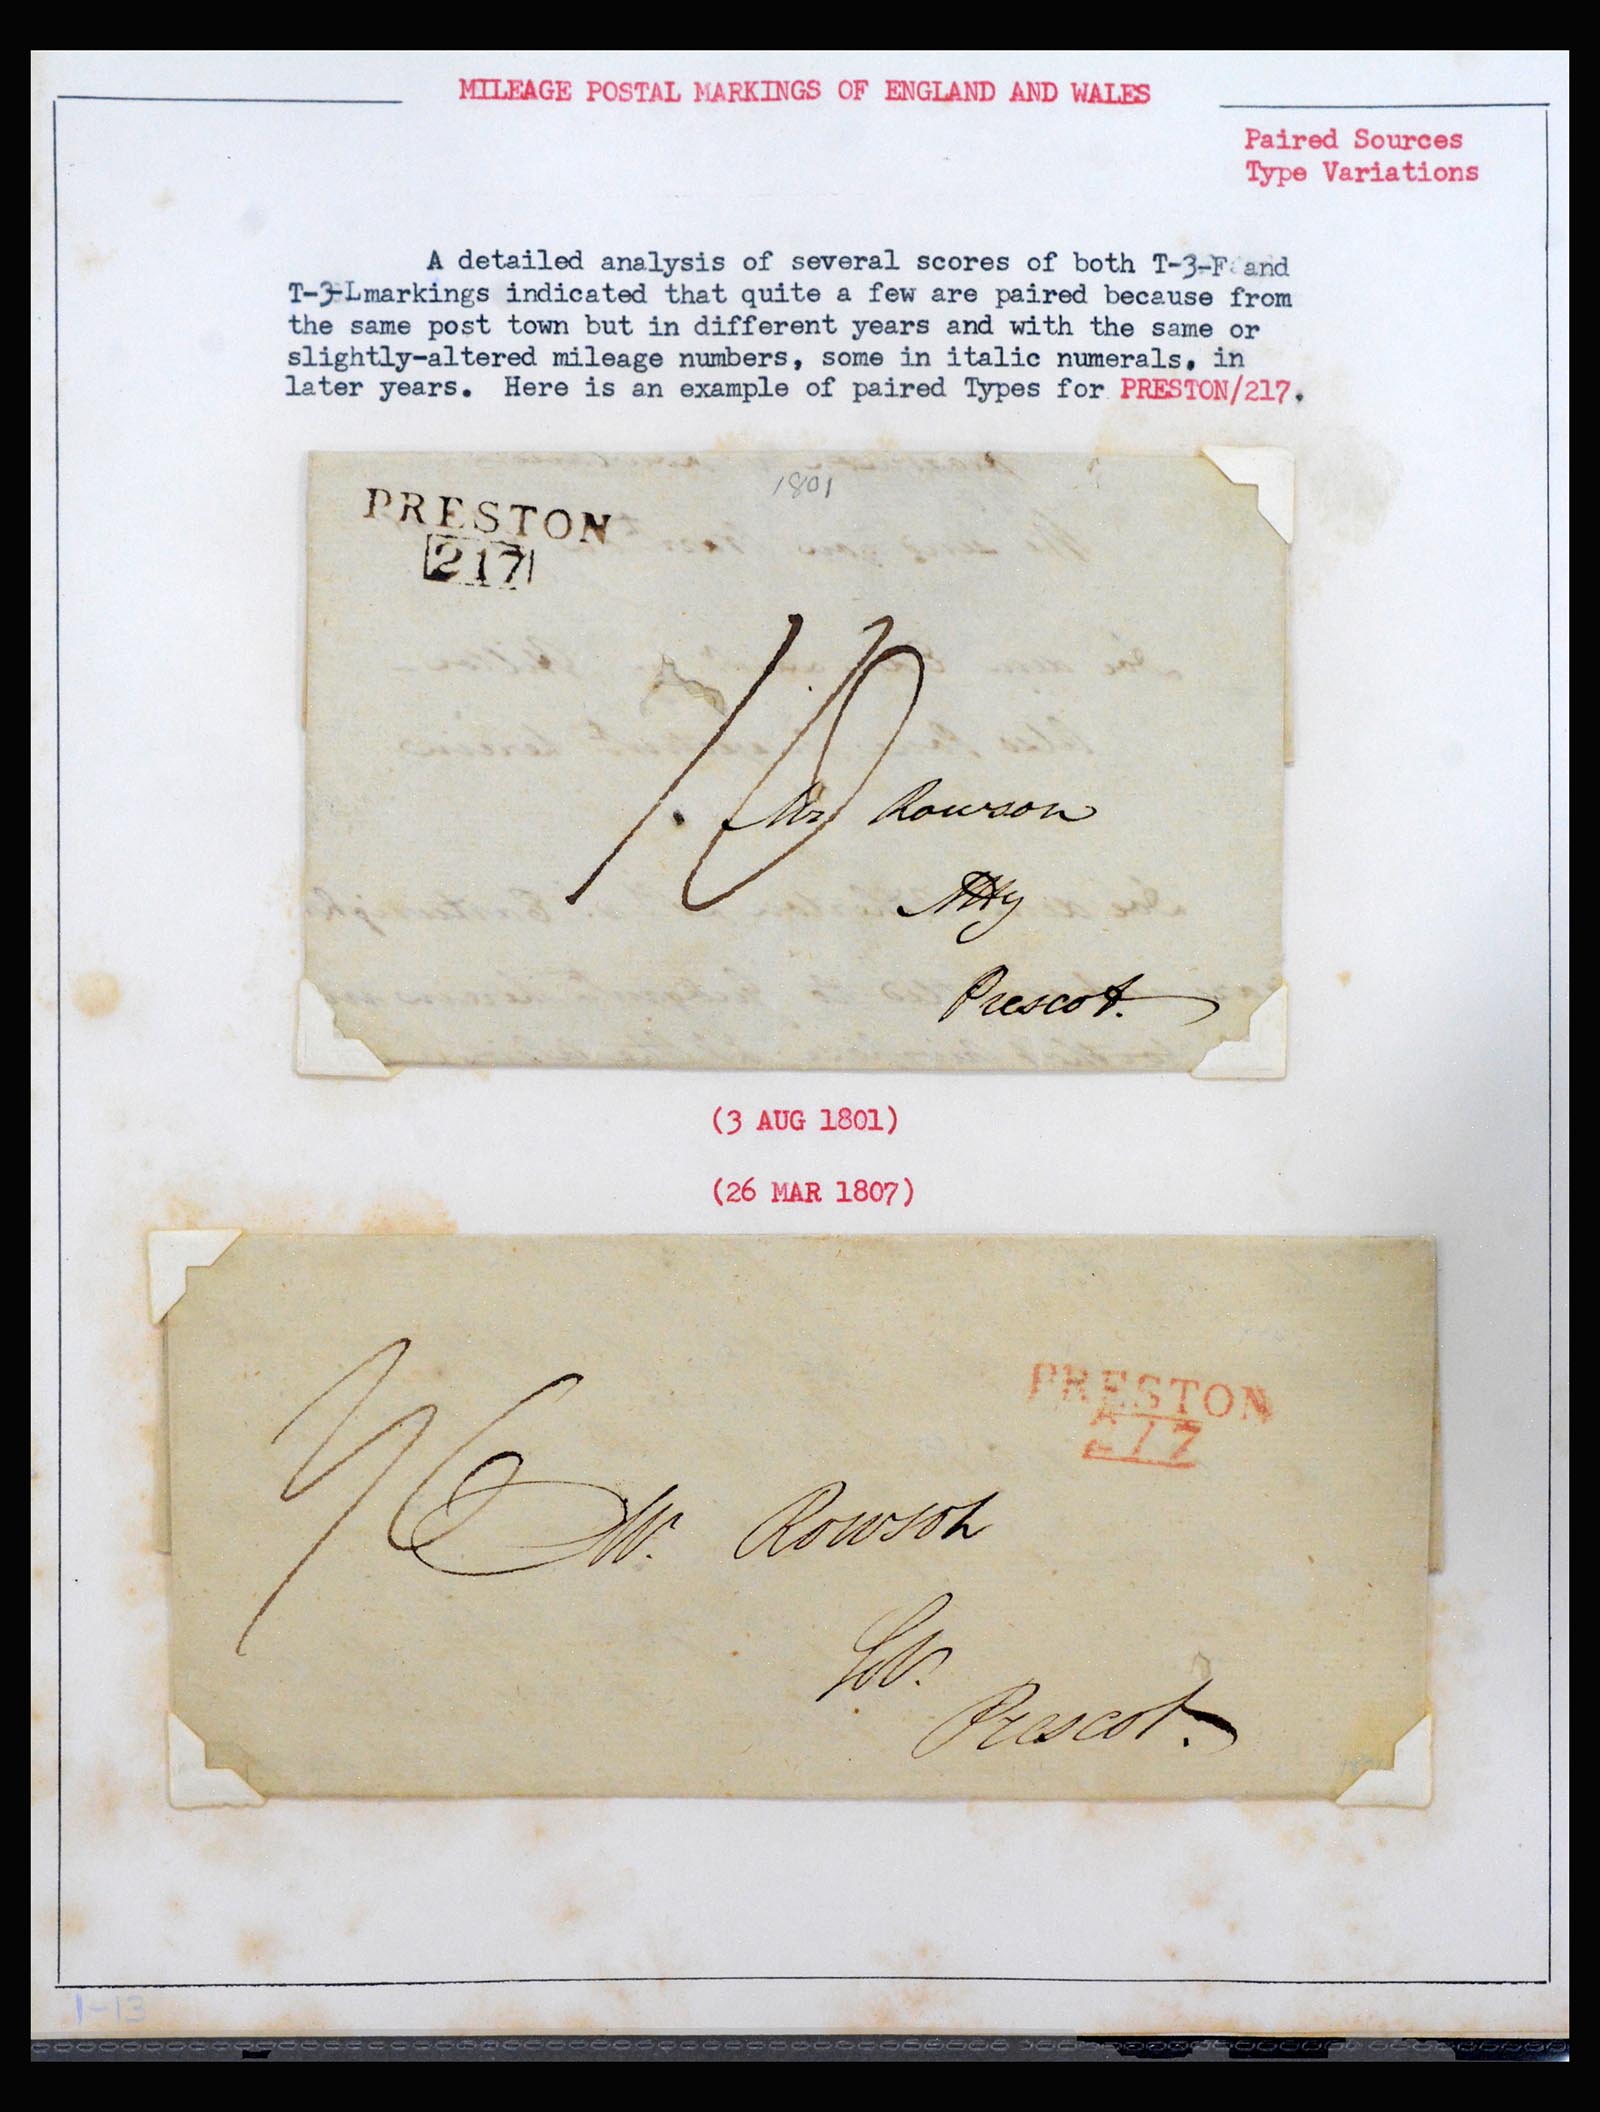 MILEAGE POSTAL MARKINGS OF ENGLAND AND WALES
Paired Sources
Type Variations
A detailed analysis of several scores of both T-3-F and
T-3-L markings indicated that quite a few are paired because from
the same post town but in different years and with the same or
slightly-altered mileage numbers, some in italic numerals, in
later years. Here is an example of paired Types for PRESTON/217.
1801
PRESTON
217
Mr Rowson
Atty
Prescot.
(3 AUG 1801)
(26 MAR 1807)
PRESTON
217
Mr. Rowson
Prescot.
1-13